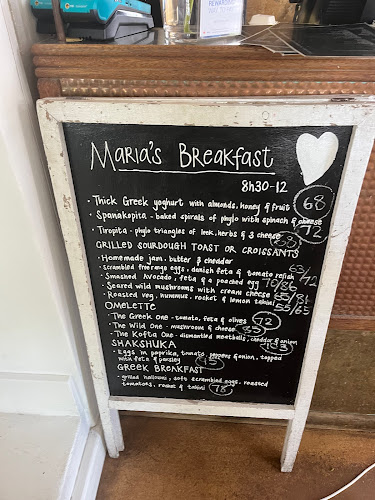 Maria's Breakfast
8h30-12
• Thick Greek yoghurt with almonds, honey & fruit 68
• Spanakopita - baked spirals of phylo with spinach & cheese 72
• Tiropita - phylo triangles of leek, herbs & 3 cheese 68
GRILLED SOURDOUGH TOAST OR CROISSANTS
• Homemade jam, butter & cheddar
• scrambled free range eggs, danish feta & tomato relish 63/72
• Smashed Avocado, feta & a poached egg 70/86
• Seared wild mushrooms with cream cheese 65/81
• Roasted veg, hummus, rocket & lemon tahini 55/65
OMELETTE
• The Greek one - tomato, feta & olives 72
• The Wild One - mushroom & cheese 85
• The Kofta One - dismantled meatballs, cheddar & onion
SHAKSHUKA
• Eggs in paprika, tomato, peppers & onion, topped
with feta & parsley 75
GREEK BREAKFAST
• grilled halloumi, soft scrambled eggs, roasted
tomatoes, rocket & tahini 78